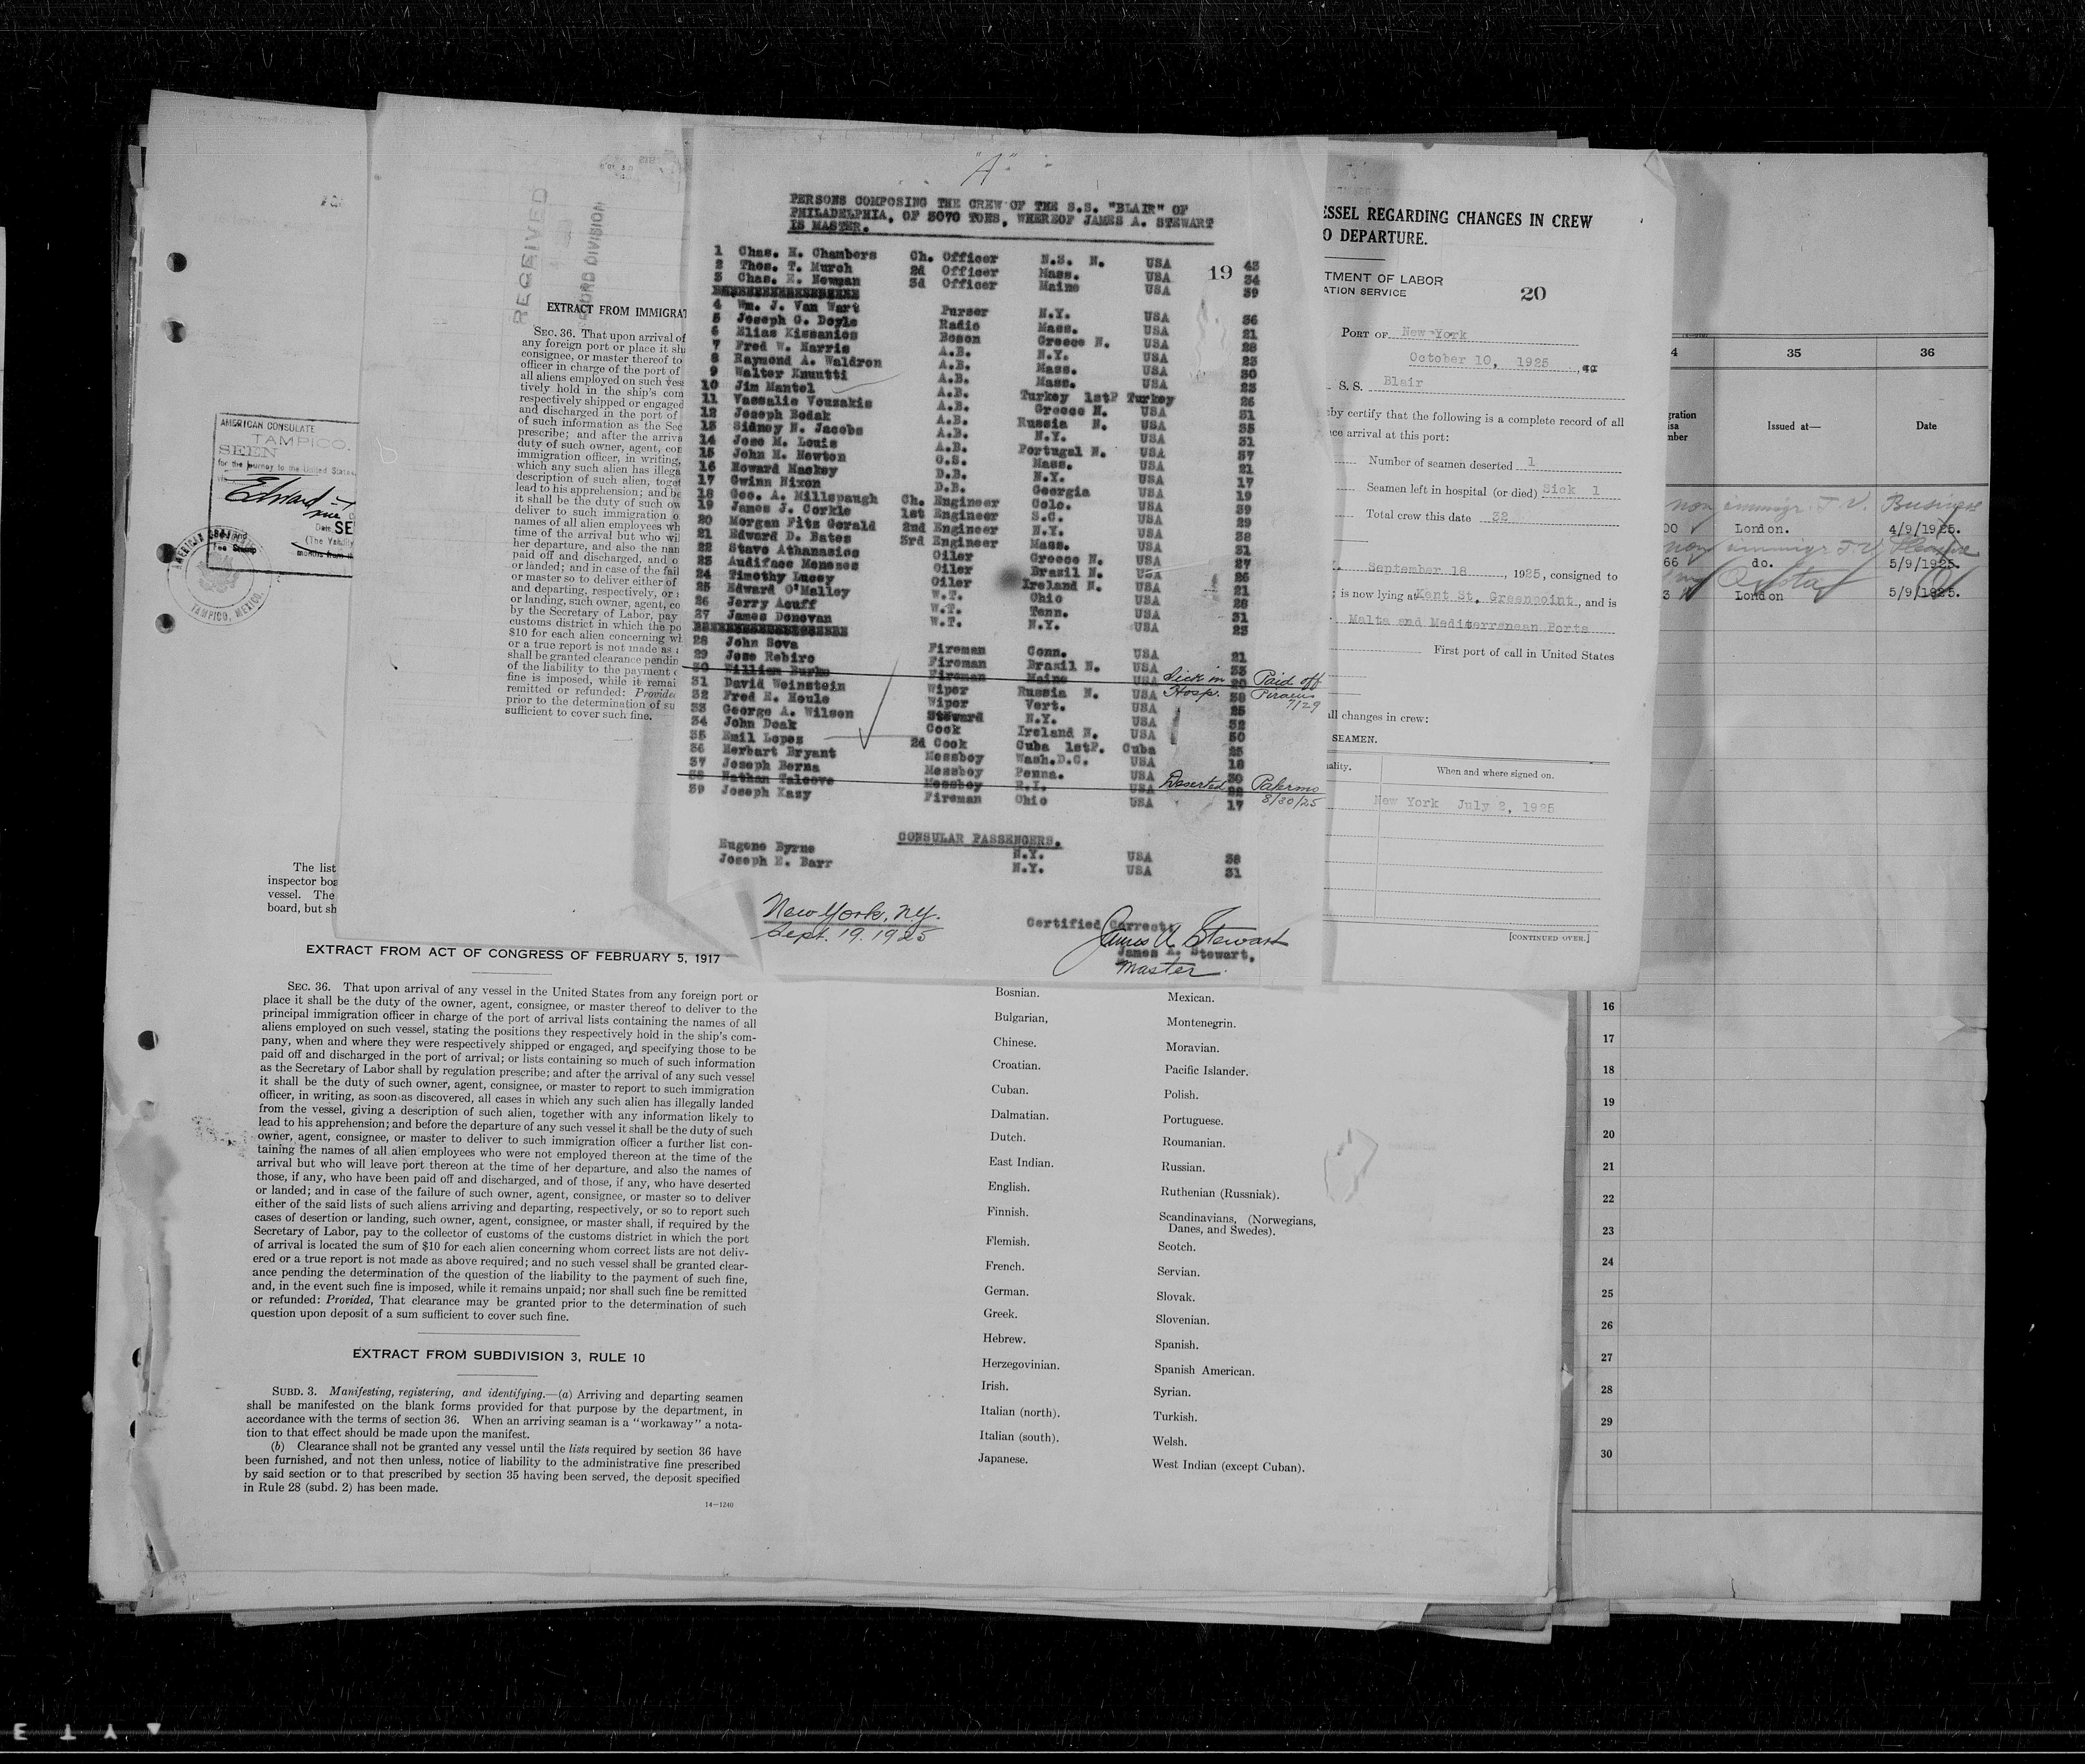 "A"
PERSONS COMPOSING THE CREW OF THE S.S. "BLAIR" OF
PHILADELPHIA, OF 5070 TONS, WHEREOF JAMES A. STEWART
IS MASTER.
19
1 Chas. H. Chambers Ch. Officer N.S. N. USA 43
2 Thos. T. Murch 2d Officer Mass. USA 34
3 Chas. E. Newman 3d Officer Maine USA 39
4 Wm. J. Van Wart Purser N.Y. USA 36
5 Joseph G. Doyle Radio Mass. USA 21
6 Elias Kissanios Boson Greece N. USA 28
7 Fred W. Harris A.B. N.Y. USA 23
8 Raymond A. Waldron A.B. Mass. USA 30
9 Walter Knuutti A.B. Mass. USA 23
10 Jim Mantel A.B. Turkey 1stP Turkey 26
11 Vassalie Vouzakis A.B. Greece N. USA 31
12 Joseph Bodak A.B. Russia N. USA 35
13 Sidney N. Jacobs A.B. N.Y. USA 31
14 Jose M. Louis A.B. Portugal N. USA 37
15 John M. Newton O.S. Mass. USA 21
16 Howard Mackey D.B. N.Y. USA 17
17 Gwinn Nixon D.B. Georgia USA 19
18 Geo. A. Millspaugh Ch. Engineer Colo. USA 39
19 James J. Corkle 1st Engineer S.C. USA 29
20 Morgan Fitz Gerald 2nd Engineer N.Y. USA 38
21 Edward D. Bates 3rd Engineer Mass. USA 31
22 Stave Athanasios Oiler Greece N. USA 27
23 Audiface Meneses Oiler Brazil N. USA 26
24 Timothy Lucey Oiler Ireland N. USA 21
25 Edward O'Malley W.T. Ohio USA 28
26 Jerry Acuff W.T. Tenn. USA 31
27 James Donovan W.T. N.Y. USA 23
28 John Sova Fireman Conn. USA 21
29 Jose Rebiro Fireman Brasil N. USA 33
30 William Burke Fireman Maine USA Sick in Hosp. Paid off Piraeus 7/29
31 David Weinstein Wiper Russia N. USA 38
32 Fred H. Houle Wiper Vert. USA 25
33 George A. Wilson Steward N.Y. USA 32
34 John Doak Cook Ireland N. USA 50
35 Emil Lopes 2d Cook Cuba 1stP. Cuba 25
36 Herbart Bryant Messboy Wash.D.C. USA 18
37 Joseph Berna Messboy Penna. USA 30
38 Nathan Talcove Messboy R.I. USA 22 Deserted Palermo 8/30/25
39 Joseph Kazy Fireman Ohio USA 17
CONSULAR PASSENGERS.
Eugene Byrne N.Y. USA 38
Joseph E. Barr N.Y. USA 31
New York, N.Y.
Sept. 19. 1925
Certified Correct:
James A. Stewart
James A. Stewart,
Master.
ESSEL REGARDING CHANGES IN CREW
O DEPARTURE.
TMENT OF LABOR
ATION SERVICE
20
PORT OF New York
October 10, 1925
S. S. Blair
by certify that the following is a complete record of all
ce arrival at this port:
Number of seamen deserted 1
Seamen left in hospital (or died) Sick 1
Total crew this date 32
September 18, 1925, consigned to
; is now lying at Kent St. Greenpoint, and is
Malta and Mediterranean Ports
First port of call in United States
ll changes in crew:
SEAMEN.
ality. When and where signed on.
New York July 2, 1925
[CONTINUED OVER.]
4 35 36
gration
isa
mber
Issued at—
Date
non immigr. T. V. Business
00 London. 4/9/1925.
non immigr T.V.
66 do. 5/9/1925.
3 London 5/9/1925.
16
17
18
19
20
21
22
23
24
25
26
27
28
29
30
RECEIVED
ORD DIVISION
EXTRACT FROM IMMIGRAT
SEC. 36. That upon arrival of
any foreign port or place it sh
consignee, or master thereof to
officer in charge of the port of
all aliens employed on such vess
tively hold in the ship's com
respectively shipped or engaged
and discharged in the port of
of such information as the Sec
prescribe; and after the arriva
duty of such owner, agent, con
immigration officer, in writing,
which any such alien has illega
description of such alien, toget
lead to his apprehension; and be
it shall be the duty of such ow
deliver to such immigration o
names of all alien employees wh
time of the arrival but who wil
her departure, and also the nam
paid off and discharged, and o
or landed; and in case of the fail
or master so to deliver either of
and departing, respectively, or s
or landing, such owner, agent, co
by the Secretary of Labor, pay
customs district in which the po
$10 for each alien concerning wh
or a true report is not made as a
shall be granted clearance pendin
of the liability to the payment o
fine is imposed, while it remai
remitted or refunded: Provided
prior to the determination of su
sufficient to cover such fine.
AMERICAN CONSULATE
TAMPICO.
SEEN
for the journey to the United States.
Edward
Date SE
(The Validity
months from
Fee Stamp
TAMPICO, MEXICO.
The list
inspector boa
vessel. The
board, but sh
EXTRACT FROM ACT OF CONGRESS OF FEBRUARY 5, 1917
SEC. 36. That upon arrival of any vessel in the United States from any foreign port or
place it shall be the duty of the owner, agent, consignee, or master thereof to deliver to the
principal immigration officer in charge of the port of arrival lists containing the names of all
aliens employed on such vessel, stating the positions they respectively hold in the ship's com-
pany, when and where they were respectively shipped or engaged, and specifying those to be
paid off and discharged in the port of arrival; or lists containing so much of such information
as the Secretary of Labor shall by regulation prescribe; and after the arrival of any such vessel
it shall be the duty of such owner, agent, consignee, or master to report to such immigration
officer, in writing, as soon as discovered, all cases in which any such alien has illegally landed
from the vessel, giving a description of such alien, together with any information likely to
lead to his apprehension; and before the departure of any such vessel it shall be the duty of such
owner, agent, consignee, or master to deliver to such immigration officer a further list con-
taining the names of all alien employees who were not employed thereon at the time of the
arrival but who will leave port thereon at the time of her departure, and also the names of
those, if any, who have been paid off and discharged, and of those, if any, who have deserted
or landed; and in case of the failure of such owner, agent, consignee, or master so to deliver
either of the said lists of such aliens arriving and departing, respectively, or so to report such
cases of desertion or landing, such owner, agent, consignee, or master shall, if required by the
Secretary of Labor, pay to the collector of customs of the customs district in which the port
of arrival is located the sum of $10 for each alien concerning whom correct lists are not deliv-
ered or a true report is not made as above required; and no such vessel shall be granted clear-
ance pending the determination of the question of the liability to the payment of such fine,
and, in the event such fine is imposed, while it remains unpaid; nor shall such fine be remitted
or refunded: Provided, That clearance may be granted prior to the determination of such
question upon deposit of a sum sufficient to cover such fine.
EXTRACT FROM SUBDIVISION 3, RULE 10
SUBD. 3. Manifesting, registering, and identifying.—(a) Arriving and departing seamen
shall be manifested on the blank forms provided for that purpose by the department, in
accordance with the terms of section 36. When an arriving seaman is a "workaway" a nota-
tion to that effect should be made upon the manifest.
(b) Clearance shall not be granted any vessel until the lists required by section 36 have
been furnished, and not then unless, notice of liability to the administrative fine prescribed
by said section or to that prescribed by section 35 having been served, the deposit specified
in Rule 28 (subd. 2) has been made.
14—1240
Bosnian.
Bulgarian,
Chinese.
Croatian.
Cuban.
Dalmatian.
Dutch.
East Indian.
English.
Finnish.
Flemish.
French.
German.
Greek.
Hebrew.
Herzegovinian.
Irish.
Italian (north).
Italian (south).
Japanese.
Mexican.
Montenegrin.
Moravian.
Pacific Islander.
Polish.
Portuguese.
Roumanian.
Russian.
Ruthenian (Russniak).
Scandinavians, (Norwegians,
Danes, and Swedes).
Scotch.
Servian.
Slovak.
Slovenian.
Spanish.
Spanish American.
Syrian.
Turkish.
Welsh.
West Indian (except Cuban).